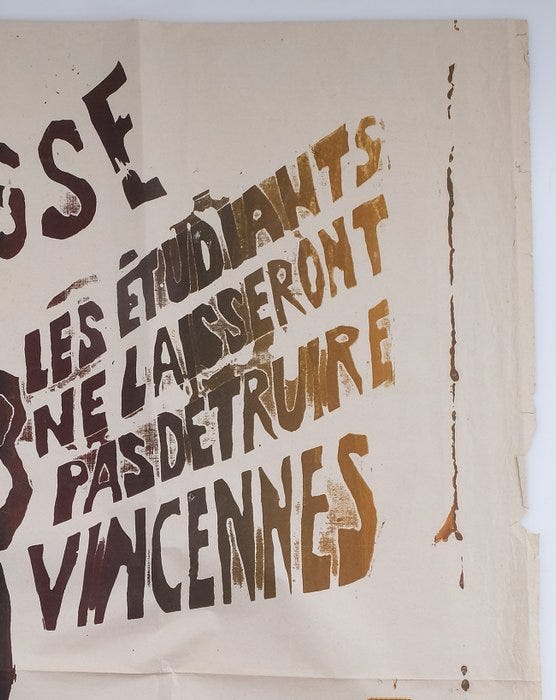 SSE
LES ÉTUDIANTS
NE LAISSERONT
PAS DÉTRUIRE
VINCENNES